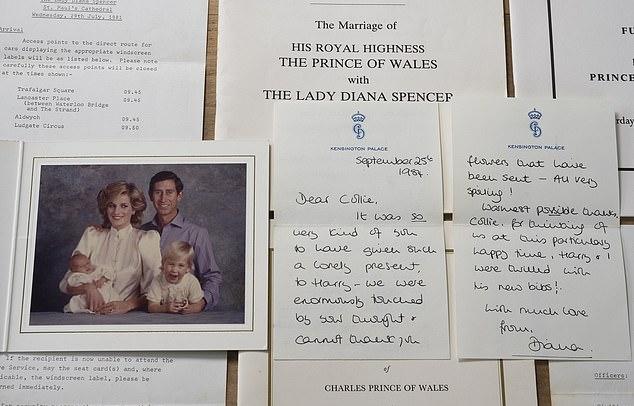 The Lady Diana Spencer
St. Paul's Cathedral
Wednesday, 29th July, 1981
Arrival
Access points to the direct route for
cars displaying the appropriate windscreen
labels will be as listed below. Please note
carefully these access points will be closed
at the times shown:-
Trafalgar Square 09.45
Lancaster Place 09.45
(between Waterloo Bridge
and The Strand)
Aldwych 09.45
Ludgate Circus 09.50
The Marriage of
HIS ROYAL HIGHNESS
THE PRINCE OF WALES
with
THE LADY DIANA SPENCER
FU
PRINCE
KENSINGTON PALACE
September 25th
1984.
Dear Collie,
It was so
very kind of you
to have given such
a lovely present,
to Harry - we were
enormously touched
by your thought &
cannot thank you
KENSINGTON PALACE
flowers that have
been sent - All very
spoiling!
Warmest possible thanks,
Collie, for thinking of
us at this particularly
happy time, Harry & I
were thrilled with
his new bibs!
with much love
from,
Diana.
If the recipient is now unable to attend the
Service, may the seat card(s) and, where
the windscreen label, please be
immediately.
of
CHARLES PRINCE OF WALES
Officers: